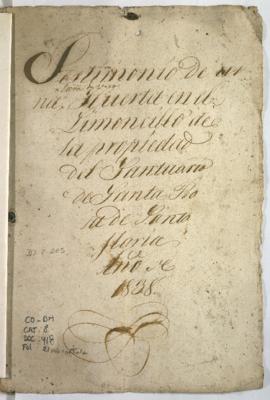 Testimonio de u
na Huerta en el
Limoncillo de
la propiedad
del Santuario
de Santa Ro
sa de
Año de
1838.
CO-BM
CAT. 8
DOC. 418
Fol